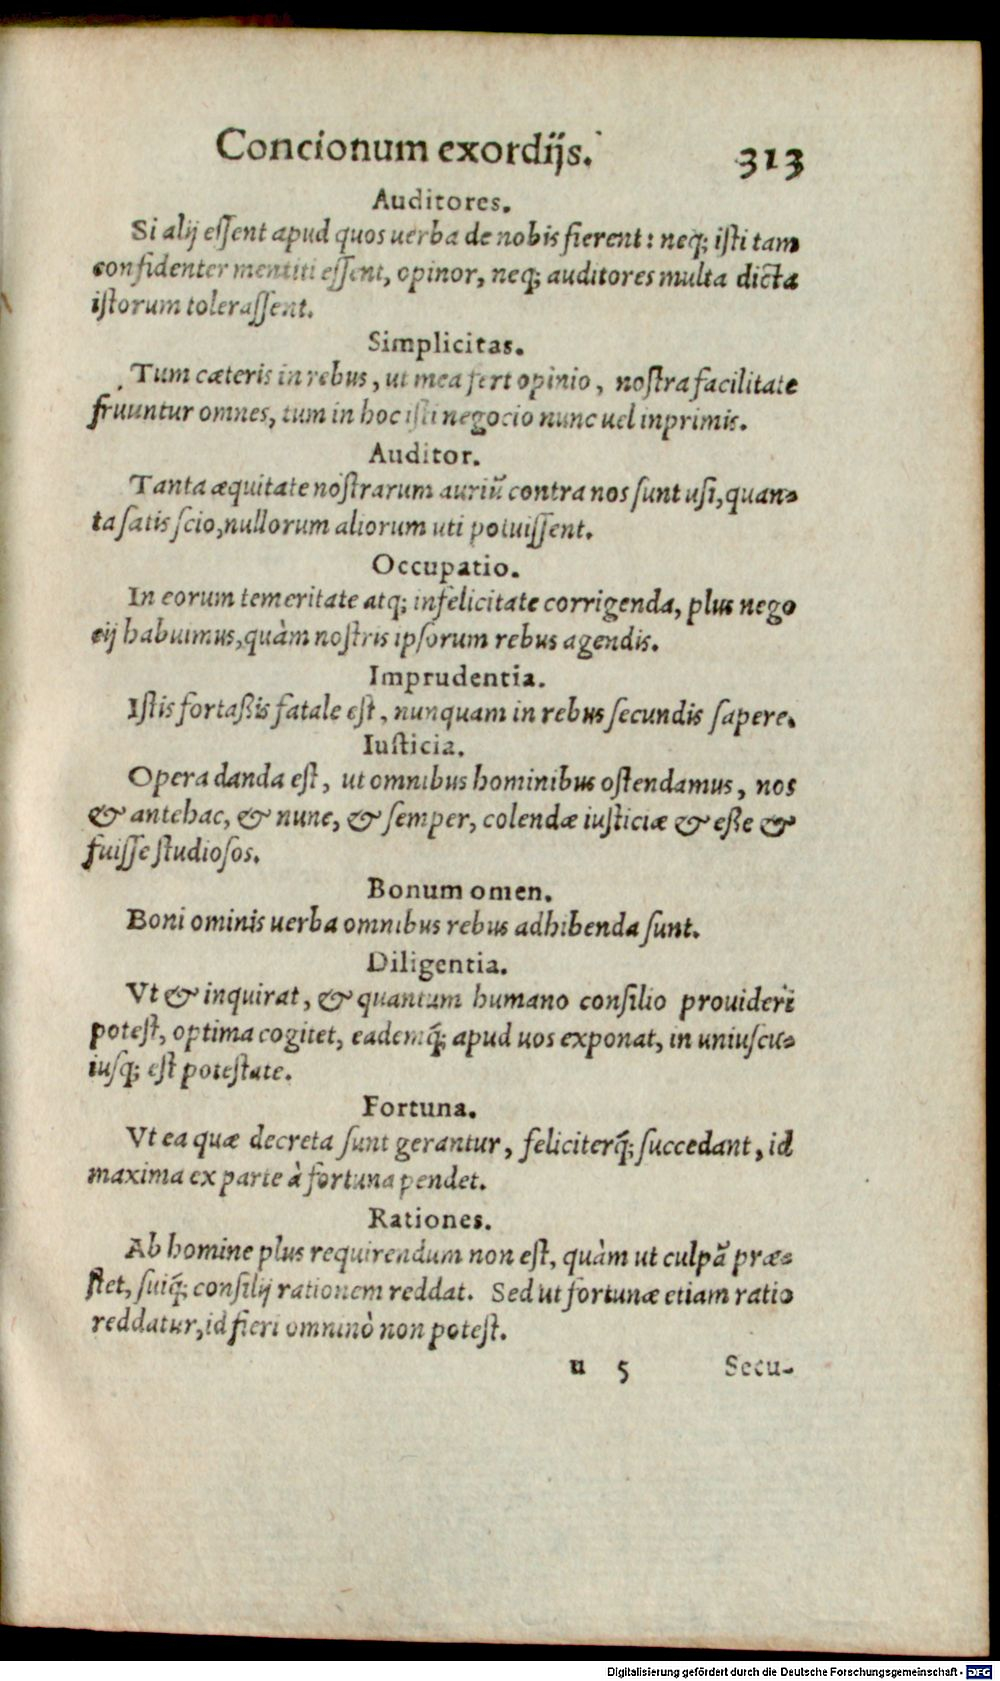 Concionum exordijs. 313
Auditores.
Si alij essent apud quos uerba de nobis fierent: neq; isti tam
confidenter mentiti essent, opinor, neq; auditores multa dicta
istorum tolerassent.
Simplicitas.
Tum cæteris in rebus, ut mea fert opinio, nostra facilitate
fruuntur omnes, tum in hoc isti negocio nunc uel inprimis.
Auditor.
Tanta æquitate nostrarum auriũ contra nos sunt usi, quan-
ta satis scio, nullorum aliorum uti potuissent.
Occupatio.
In eorum temeritate atq; infelicitate corrigenda, plus nego
cij habuimus, quàm nostris ipsorum rebus agendis.
Imprudentia.
Istis fortaßis fatale est, nunquam in rebus secundis sapere.
Iusticia.
Opera danda est, ut omnibus hominibus ostendamus, nos
& antehac, & nunc, & semper, colendæ iusticiæ & eße &
fuisse studiosos.
Bonum omen.
Boni ominis uerba omnibus rebus adhibenda sunt.
Diligentia.
Vt & inquirat, & quantum humano consilio prouideri
potest, optima cogitet, eademq́; apud uos exponat, in uniuscu-
iusq; est potestate.
Fortuna.
Vt ea quæ decreta sunt gerantur, feliciterq́; succedant, id
maxima ex parte à fortuna pendet.
Rationes.
Ab homine plus requirendum non est, quàm ut culpã præ-
stet, suiq́; consilij rationem reddat. Sed ut fortunæ etiam ratio
reddatur, id fieri omninò non potest.
u 5 Secu-
Digitalisierung gefördert durch die Deutsche Forschungsgemeinschaft - DFG